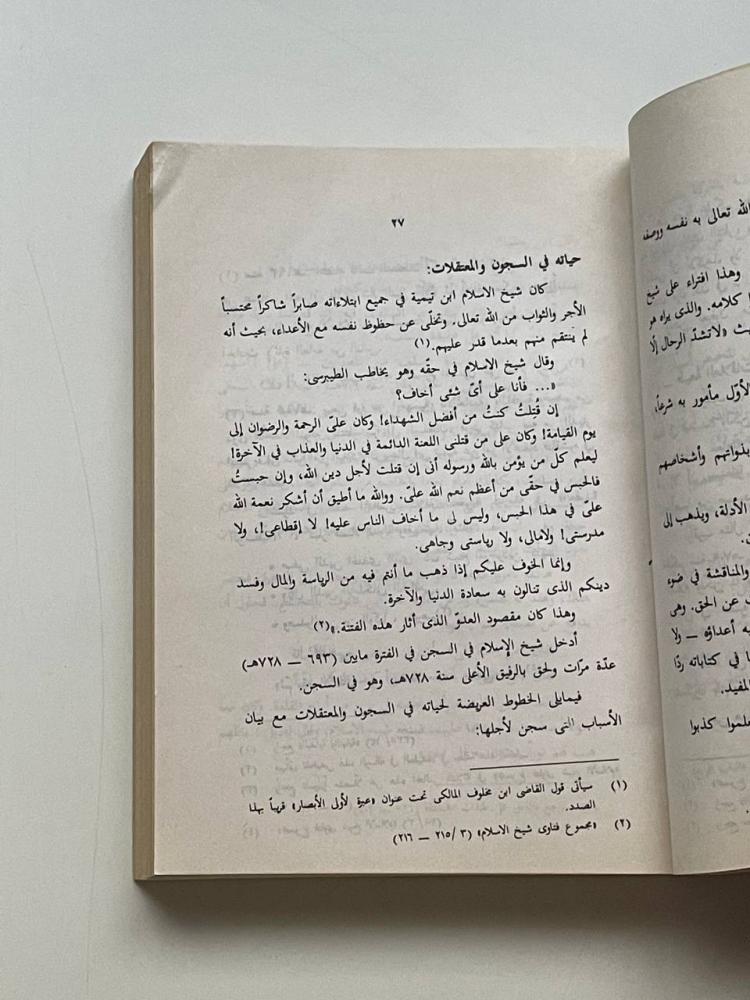 ٢٧
حياته في السجون والمعتقلات:
كان شيخ الاسلام ابن تيمية في جميع ابتلاءاته صابراً شاكراً محتسباً
الأجر والثواب من الله تعالى. وتخلّى عن حظوظ نفسه مع الأعداء، بحيث أنه
لم ينتقم منهم بعدما قدر عليهم.(١)
وقال شيخ الاسلام في حقّه وهو يخاطب الطيبرسى:
«... فأنا على أىّ شئى أخاف؟
إن قُتِلتُ كنتُ من أفضل الشهداء! وكان علىّ الرحمة والرضوان إلى
يوم القيامة! وكان على من قتلنى اللعنة الدائمة في الدنيا والعذاب في الآخرة!
ليعلم كلّ من يؤمن بالله ورسوله أنى إن قتلت لأجل دين الله، وإن حبستُ
فالحبس في حقّى من أعظم نعم الله علىّ. ووالله ما أطيق أن أشكر نعمة الله
علىّ في هذا الحبس، وليس لى ما أخاف الناس عليه! لا إقطاعى!، ولا
مدرستى! ولامالى، ولا رياستى وجاهى.
وإنما الخوف عليكم إذا ذهب ما أنتم فيه من الرياسة والمال وفسد
دينكم الذى تنالون به سعادة الدنيا والآخرة.
وهذا كان مقصود العدوّ الذى أثار هذه الفتنة.»(٢)
أدخل شيخ الإسلام في السجن في الفترة مابين (٦٩٣ — ٧٢٨هـ)
عدّة مرّات ولحق بالرفيق الأعلى سنة ٧٢٨هـ، وهو في السجن.
فيمايلى الخطوط العريضة لحياته في السجون والمعتقلات مع بيان
الأسباب التى سجن لأجلها:
(١) سيأتى قول القاضى ابن مخلوف المالكى تحت عنوان «عبرة لأولى الأبصار» قريباً بهذا
الصدد.
(٢) «مجموع فتاوى شيخ الاسلام» (٣/ ٢١٥ — ٢١٦)
الله تعالى به نفسه ووصفه
وهذا افتراء على شيخ
كلامه. والذى يراه هو
«لاتشدّ الرحال إلّا
الأوّل مأمور به شرعاً،
بذواتهم وأشخاصهم
الأدلة، ويذهب إلى
والمناقشة في ضوء
عن الحق. وهى
أعداؤه — ولا
في كتاباته ردّا
المفيد.
كذبوا